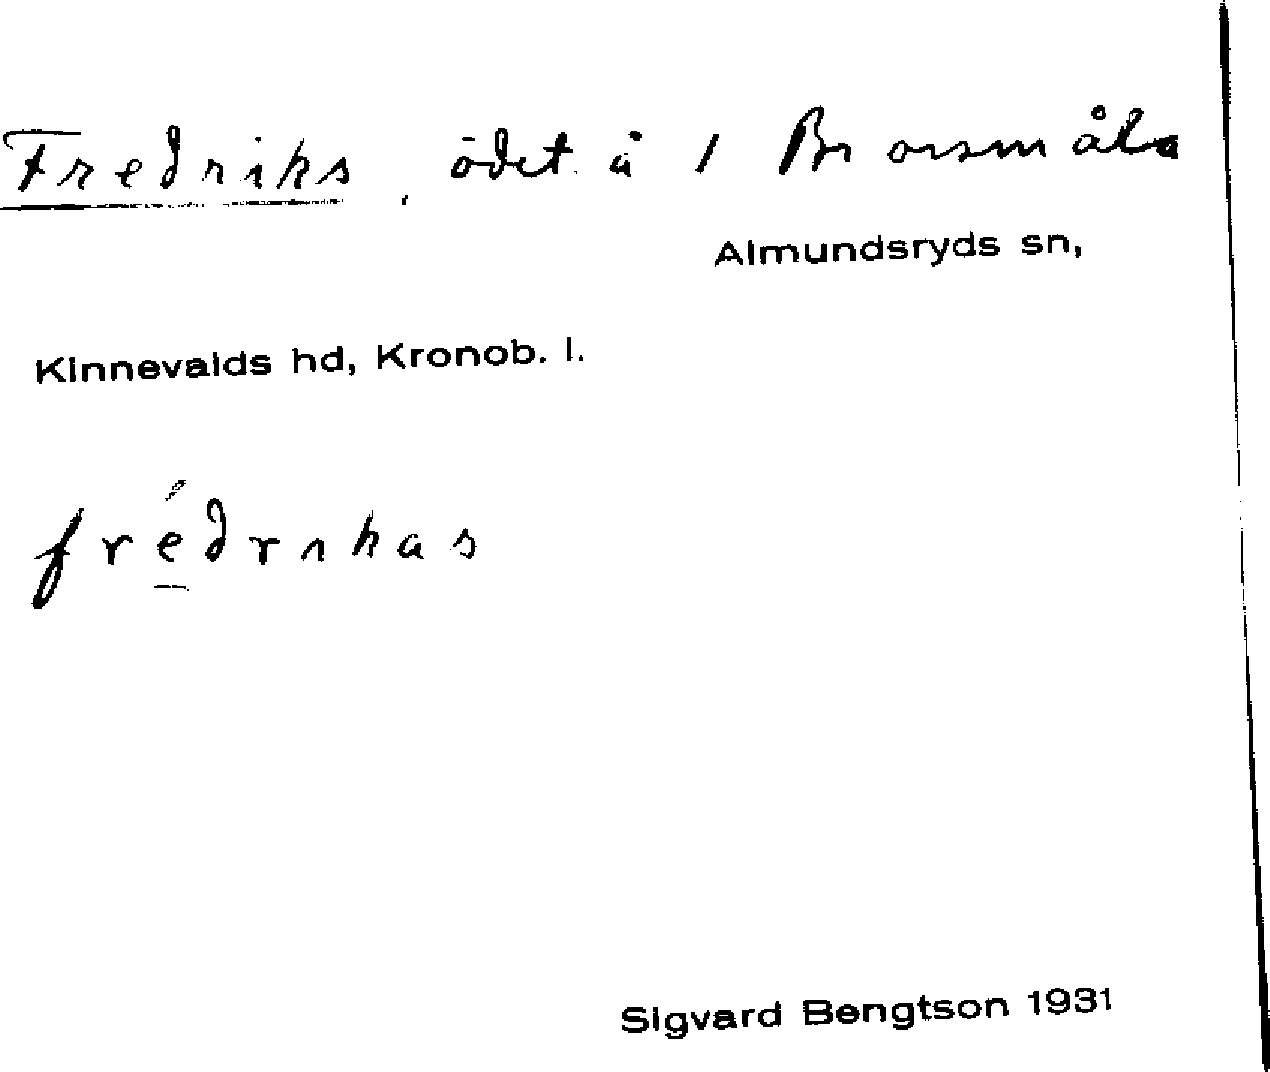 Fredriks, ödet. å 1 Brorsmåla
Almundsryds sn,
Kinnevalds hd, Kronob. l.
frédrıkas
Sigvard Bengtson 1931